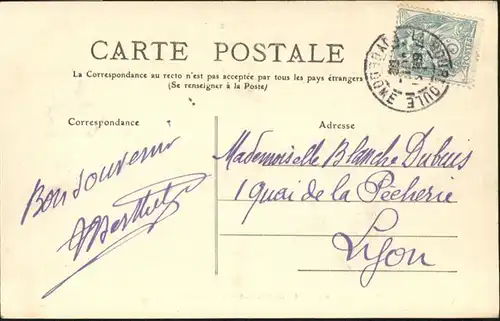 CARTE POSTALE
La Correspondance au recto n'est pas acceptée par tous les pays étrangers
(Se renseigner à la Poste)
Correspondance
Adresse
Bon Souvenir
Mademoiselle Blanche Dubuis
1 Quai de la Pêcherie
Lyon
LA BOURBOULE
PUY-DE-DOME